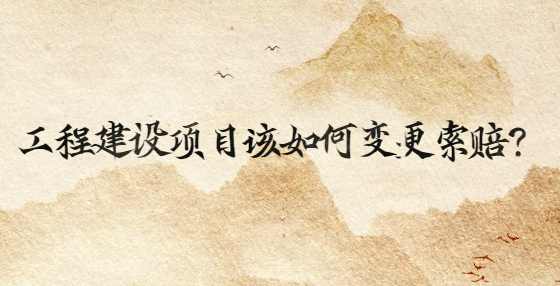 工程建设项目该如何变更索赔?